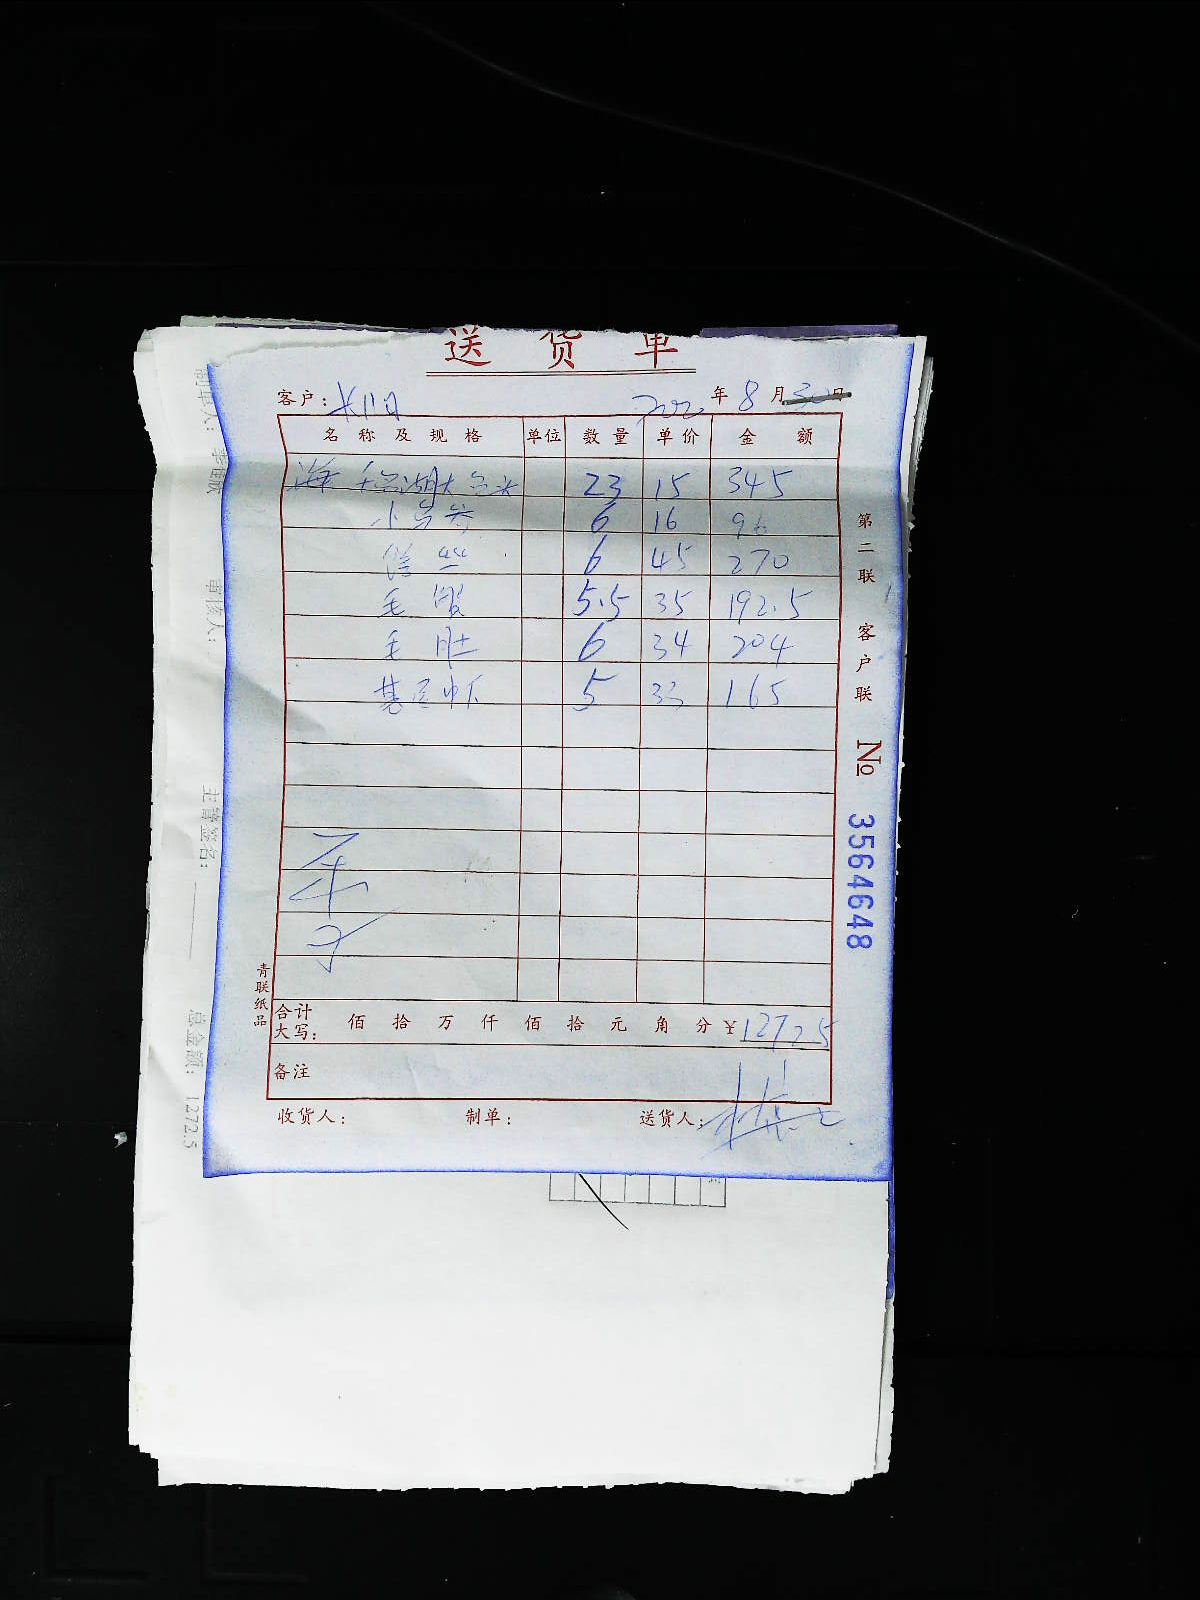 送货单
客户: 年 8 月 30 日
名称及规格 单位 数量 单价 金额
海 千岛湖大鱼头 23 15 345
6 16 96
6 45 270
毛 5.5 35 192.5
毛肚 6 34 204
基尾虾 5 33 165
合计大写: 佰 拾 万 仟 佰 拾 元 角 分 ¥1272.5
备注
收货人: 制单: 送货人:
第二联 客户联
No 3564648
青联纸品
审核人:
主管签名:
总金额: 1272.5